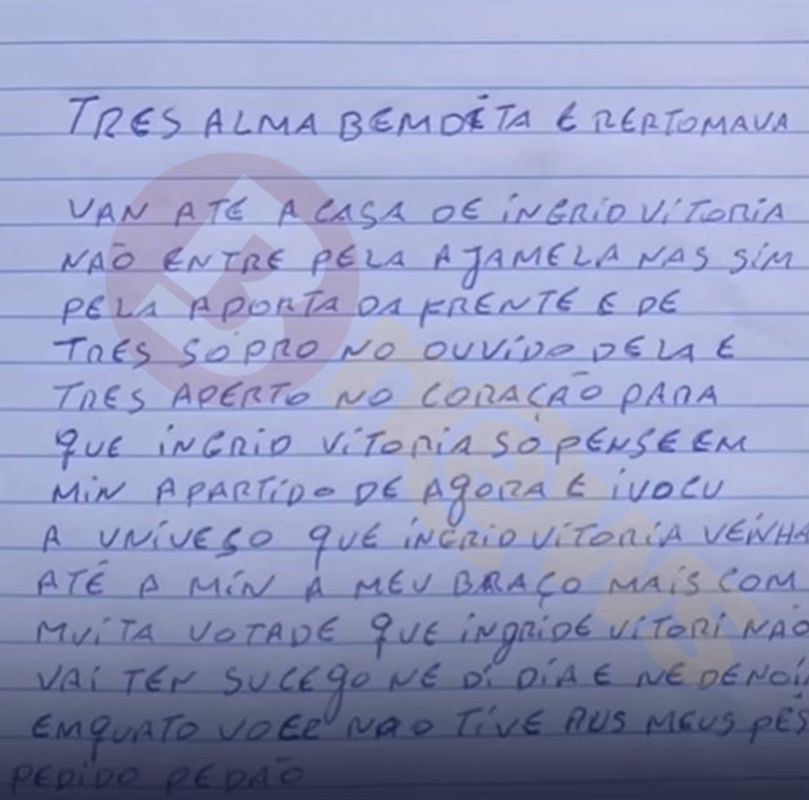 TRES ALMA BEMDITA E RERTOMAVA
VAN ATÉ A CASA DE iNGRiD ViTORiA
NÃO ENTRE PELA A JAMELA NAS SiM
PELA A PORTA DA FRENTE E DE
TRES SOPRO NO OUViDO DELA E
TRES APERTO NO CORAÇÃO PARA
QUE iNGRiD ViTORiA SÓ PENSE EM
MiN APARTiDO DE AgORA E iVOCU
A UNiVESO QUE iNGRiD ViTORiA VEiNHA
ATÉ A MiN A MEU BRAÇO MAiS COM
MUiTA VOTADE QUE iNgRiDE ViTORi NÃO
VAi TER SUCEgO NE Di DiA E NE DENOi
EMQUATO VOER NÃO TiVE AUS MEUS PÉS
PEDiDO PEDÃO
B
news